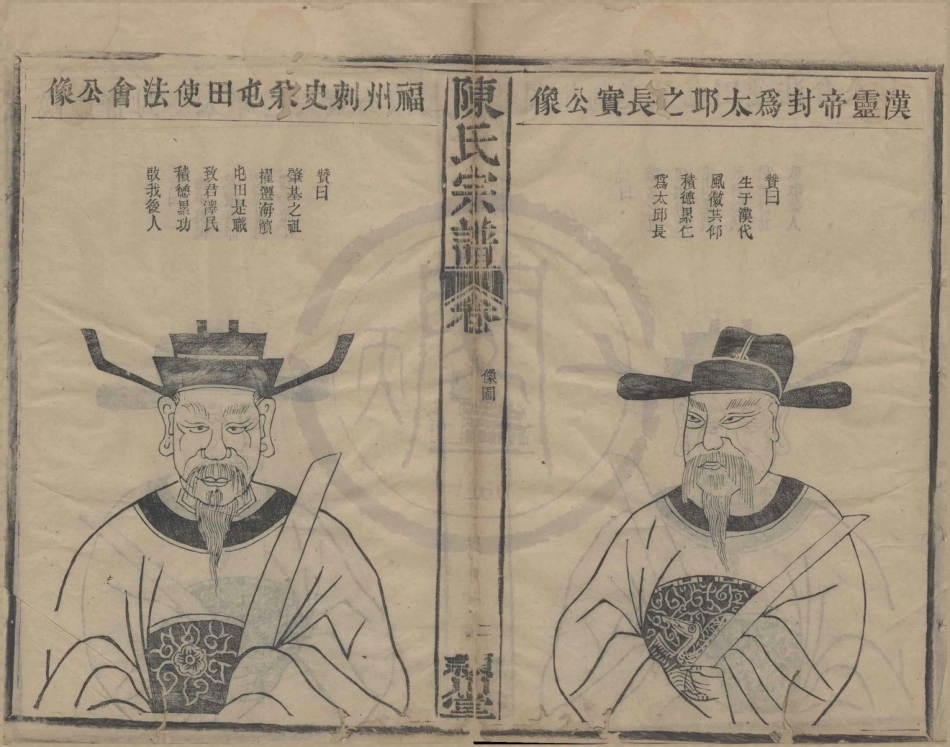 漢靈帝封爲太邱之長實公像
贊曰
生于漢代
風徽共仰
積德累仁
爲太邱長
陳氏宗譜卷
像圖
二
堂
福州刺史兼屯田使法會公像
贊曰
肇基之祖
擢遷海濱
屯田是職
致君澤民
積德累功
啟我後人